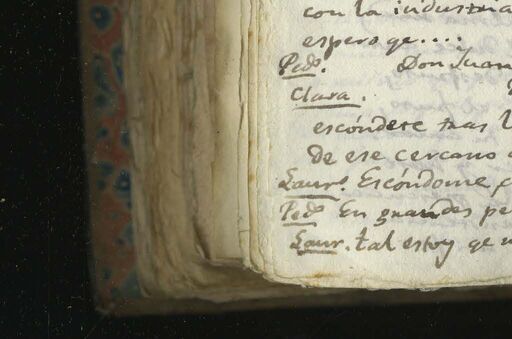 con la industria
espero qe....
Pedº. Don Juan
Clara.
escóndete tras l
de ese cercano
Laurº. Escóndome,
Pedº En grandes pe
Laur. tal estoy qe